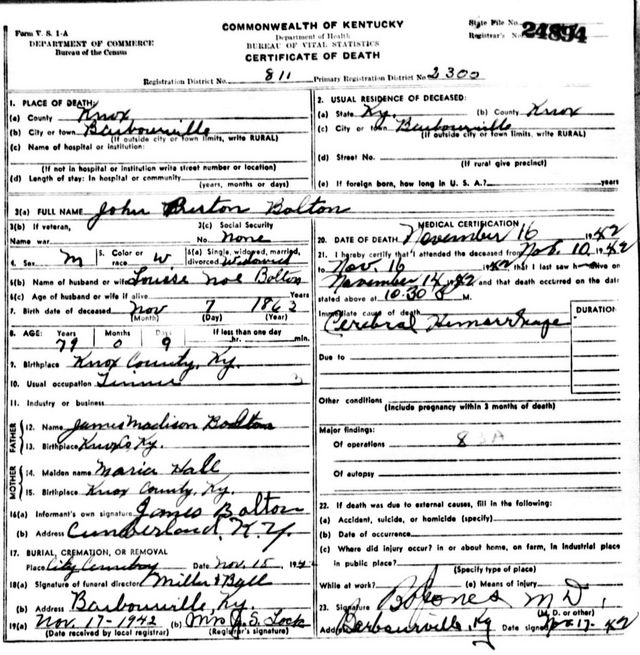 Form V. S. 1-A
DEPARTMENT OF COMMERCE
Bureau of the Census
COMMONWEALTH OF KENTUCKY
Department of Health
BUREAU OF VITAL STATISTICS
CERTIFICATE OF DEATH
State File No.
Registrar's No. 24894
Registration District No. 811 Primary Registration District No. 2300
1. PLACE OF DEATH:
(a) County Knox
(b) City or town Barbourville
(If outside city or town limits, write RURAL)
(c) Name of hospital or institution:
(If not in hospital or institution write street number or location)
(d) Length of stay: In hospital or community
(years, months or days)
2. USUAL RESIDENCE OF DECEASED:
(a) State Ky. (b) County Knox
(c) City or town Barbourville
(If outside city or town limits, write RURAL)
(d) Street No.
(If rural give precinct)
(e) If foreign born, how long in U. S. A.? years
3(a) FULL NAME John Burton Bolton
3(b) If veteran, 3(c) Social Security
Name war No. None
4. Sex M 5. Color or race W 6(a) Single, widowed, married, divorced Widowed
6(b) Name of husband or wife Louise Noe Bolton
6(c) Age of husband or wife if alive Years
7. Birth date of deceased Nov 7 1863
(Month) (Day) (Year)
8. AGE: Years Months Days If less than one day
79 0 9 hr. min.
9. Birthplace Knox County, Ky.
10. Usual occupation
11. Industry or business
FATHER
12. Name James Madison Bolton
13. Birthplace Knox Co Ky.
MOTHER
14. Maiden name Maria Hall
15. Birthplace Knox County, Ky.
16(a) Informant's own signature James Bolton
(b) Address Cumberland, Ky.
17. BURIAL, CREMATION, OR REMOVAL
Place City Cemetery Date Nov. 18, 1942
18(a) Signature of funeral director Miller & Ball
(b) Address Barbourville, Ky.
19(a) Nov. 17-1942 (b) Mrs J. S. Lock
(Date received by local registrar) (Registrar's signature)
MEDICAL CERTIFICATION
20. DATE OF DEATH November 16 1942
21. I hereby certify that I attended the deceased from Nov. 10, 1942
to Nov. 16 1942 that I last saw h alive on
November 14 1942 and that death occurred on the date
stated above at 10:30 M.
Immediate cause of death DURATION
Cerebral Hemorrhage
Due to
Other conditions
(Include pregnancy within 3 months of death)
Major findings:
Of operations 83A
Of autopsy
22. If death was due to external causes, fill in the following:
(a) Accident, suicide, or homicide (specify)
(b) Date of occurrence
(c) Where did injury occur? in or about home, on farm, in industrial place
in public place?
(Specify type of place)
While at work? (e) Means of injury
23. Signature M D,
(M. D. or other)
Address Barbourville, Ky Date signed Nov 17-42